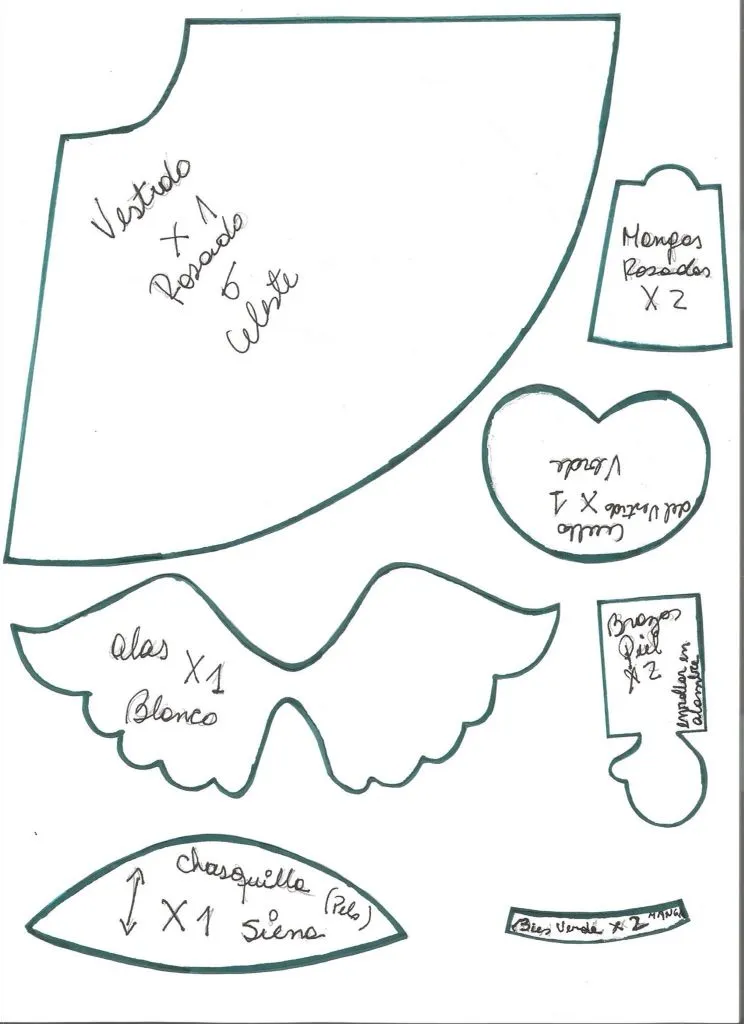 Vestido
X 1
Rosado
ó
Celeste
Mangas
Rosadas
X 2
Cuello
del Vestido X 1
Verde
alas
X 1
Blanco
Brazos
Piel
X 2
enrollar en
alambre
Chasquilla
(Pelo)
X 1 Siena
Bies Verde X 2 MANGA